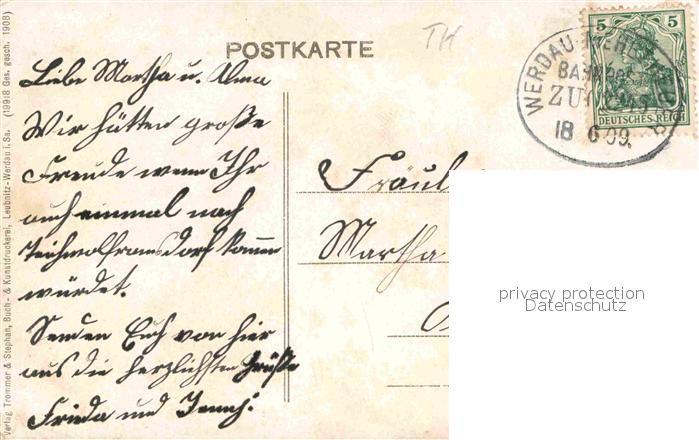 POSTKARTE
TH
Liebe Martha u. Alma
Wir hätten große
Freude wenn Ihr
auch einmal nach
Teichwolframsdorf kommen
würdet.
Senden Euch von hier
aus die herzlichsten Grüße
Frieda und
Fräul
Martha
5 5
DEUTSCHES REICH
WERDAU
BAHNPOST
ZUG
18 6 09.
privacy protection
Datenschutz
Verlag Trommer & Stephan, Buch- & Kunstdruckerei, Leubnitz-Werdau i. Sa. (19918 Ges. gesch. 1908)